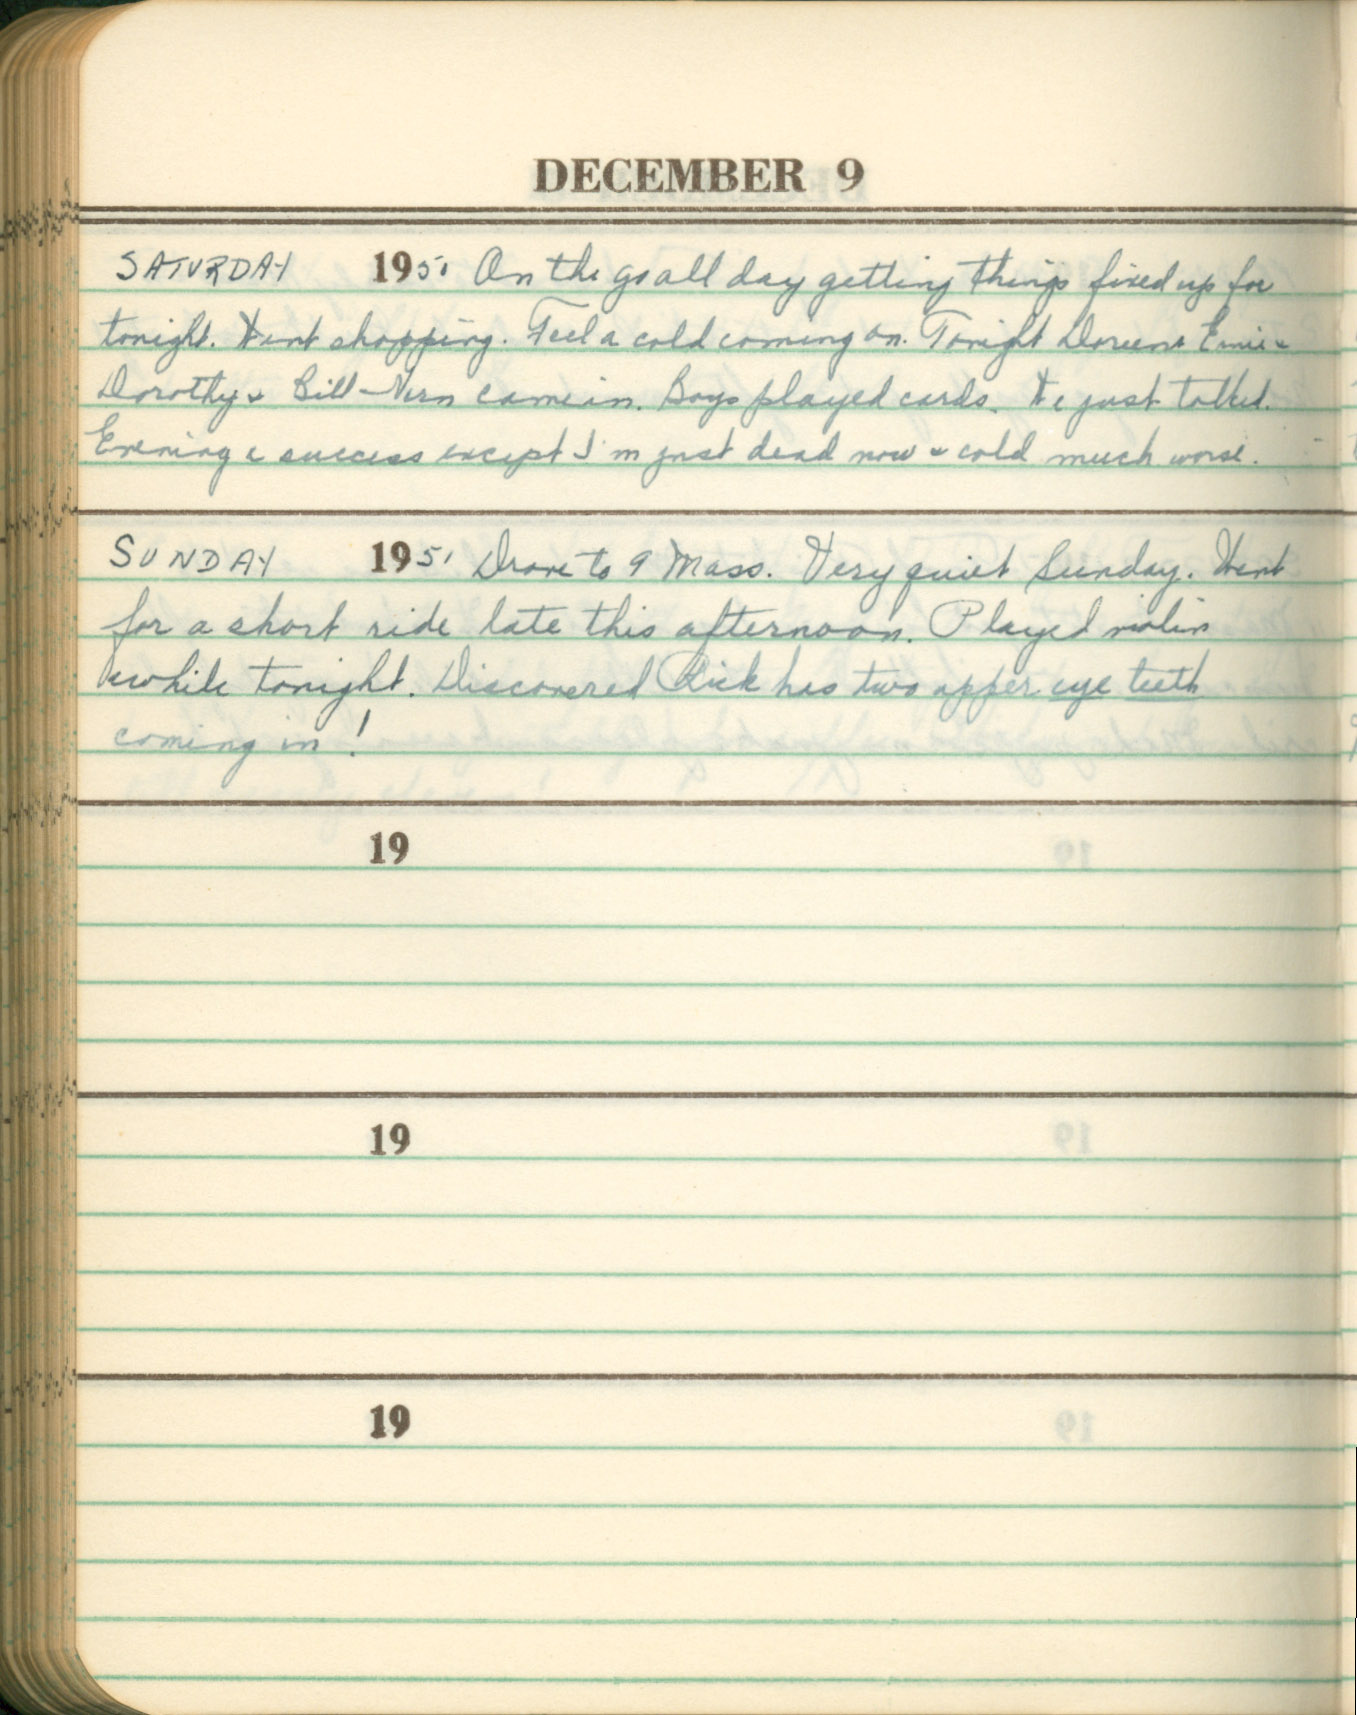 DECEMBER 9
SATURDAY 1950 On the go all day getting things fixed up for
tonight. Went shopping. Feel a cold coming on. Tonight Doreen & Ernie &
Dorothy & Bill - Vern came in. Boys played cards. We just talked.
Evening a success except I'm just dead now & cold much worse.
SUNDAY 1951 Drove to 9 Mass. Very quiet Sunday. Went
for a short ride late this afternoon. Played violin
awhile tonight. Discovered Rick has two upper eye teeth
coming in!
19
19
19